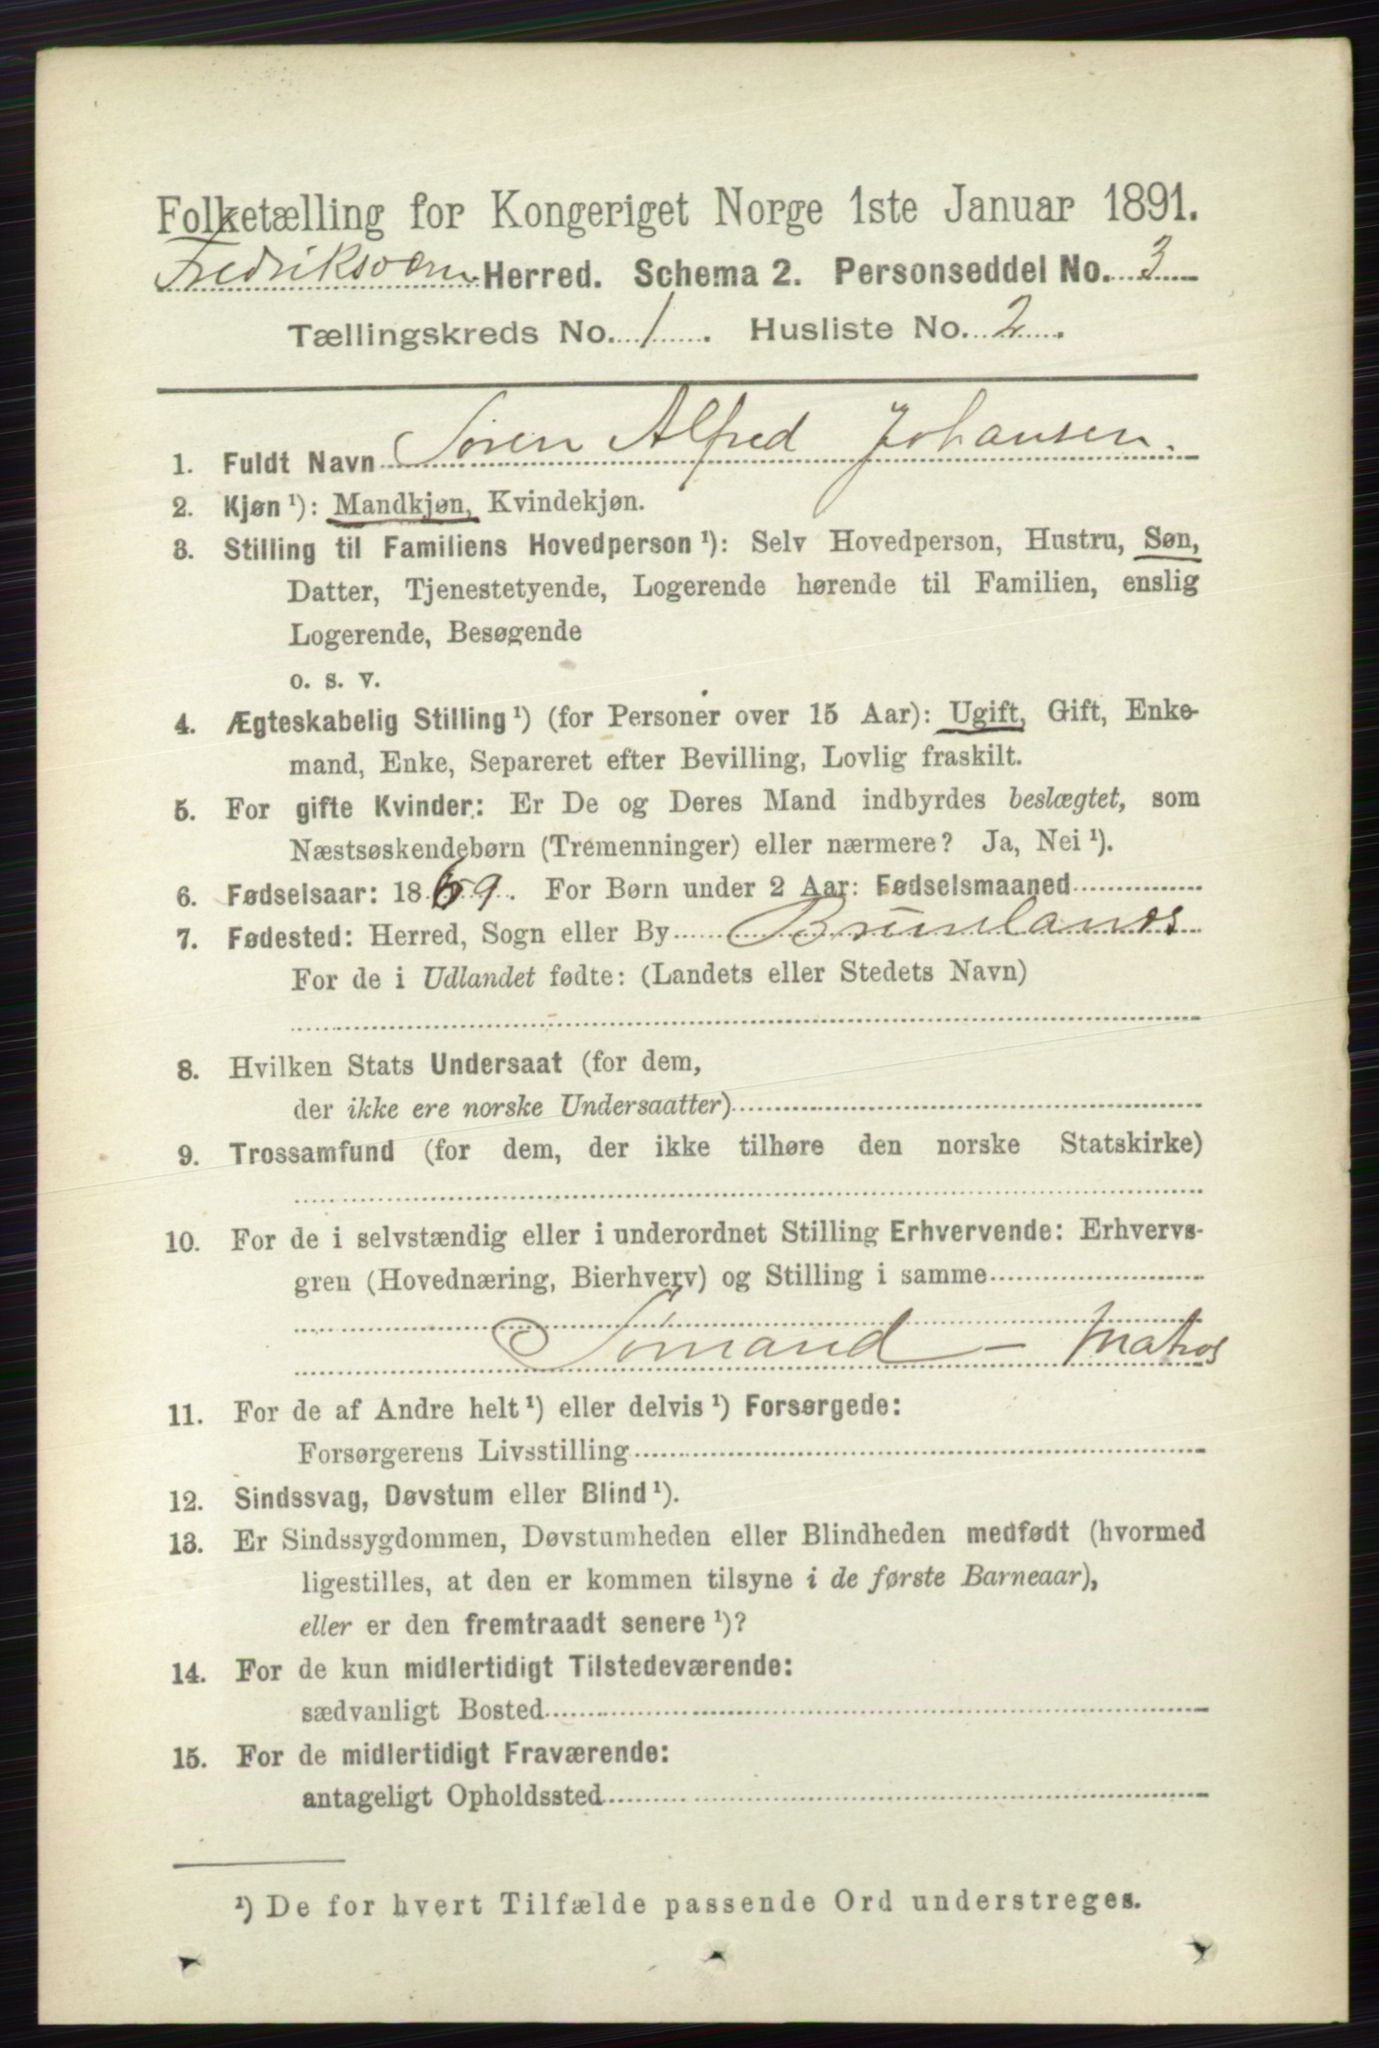 Folketælling for Kongeriget Norge 1ste Januar 1891.
Fredriksværn Herred. Schema 2. Personseddel No. 3
Tællingskreds No. 1. Husliste No. 2.
1. Fuldt Navn Søren Alfred Johansen.
2. Kjøn ¹): Mandkjøn, Kvindekjøn.
3. Stilling til Familiens Hovedperson ¹): Selv Hovedperson, Hustru, Søn,
Datter, Tjenestetyende, Logerende hørende til Familien, enslig
Logerende, Besøgende
o. s. v.
4. Ægteskabelig Stilling ¹) (for Personer over 15 Aar): Ugift, Gift, Enke-
mand, Enke, Separeret efter Bevilling, Lovlig fraskilt.
5. For gifte Kvinder: Er De og Deres Mand indbyrdes beslægtet, som
Næstsøskendebørn (Tremenninger) eller nærmere? Ja, Nei ¹).
6. Fødselsaar: 1869. For Børn under 2 Aar: Fødselsmaaned
7. Fødested: Herred, Sogn eller By Brunlanæs
For de i Udlandet fødte: (Landets eller Stedets Navn)
8. Hvilken Stats Undersaat (for dem,
der ikke ere norske Undersaatter)
9. Trossamfund (for dem, der ikke tilhøre den norske Statskirke)
10. For de i selvstændig eller i underordnet Stilling Erhvervende: Erhvervs-
gren (Hovednæring, Bierhverv) og Stilling i samme
Sømand – Matros
11. For de af Andre helt ¹) eller delvis ¹) Forsørgede:
Forsørgerens Livsstilling
12. Sindssvag, Døvstum eller Blind ¹).
13. Er Sindssygdommen, Døvstumheden eller Blindheden medfødt (hvormed
ligestilles, at den er kommen tilsyne i de første Barneaar),
eller er den fremtraadt senere ¹)?
14. For de kun midlertidigt Tilstedeværende:
sædvanligt Bosted
15. For de midlertidigt Fraværende:
antageligt Opholdssted
¹) De for hvert Tilfælde passende Ord understreges.